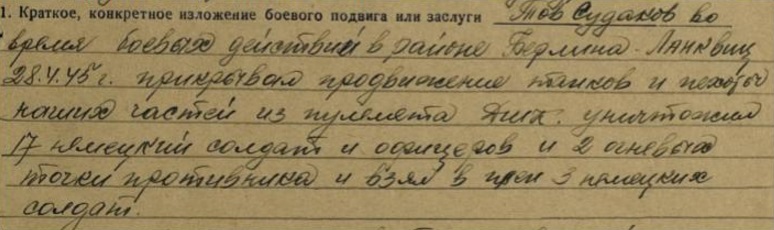 1. Краткое, конкретное изложение боевого подвига или заслуги Тов Судаков во
время боевых действий в районе Берлина-Ланквиц
28.4.45 г. прикрывая продвижение танков и пехоты
наших частей из пулемета ДШК. уничтожил
17 немецкий солдат и офицеров и 2 огневых
точки противника и взял в плен 3 немецких
солдат.